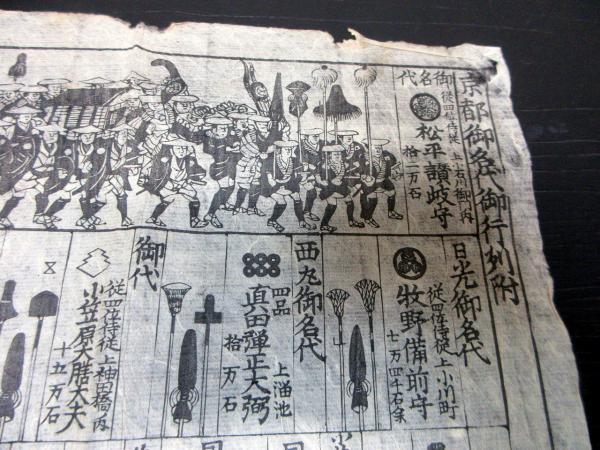 京都御名代御行列附
御名代
従四位侍従 上小石川御門内
松平讃岐守
拾二万石
日光御名代
従四位侍従 上小川町
牧野備前守
七万四千石余
西丸御名代
四品 上溜池
真田弾正大弼
拾万石
御代
従四位侍従 上神田橋内
小笠原大膳太夫
十五万石